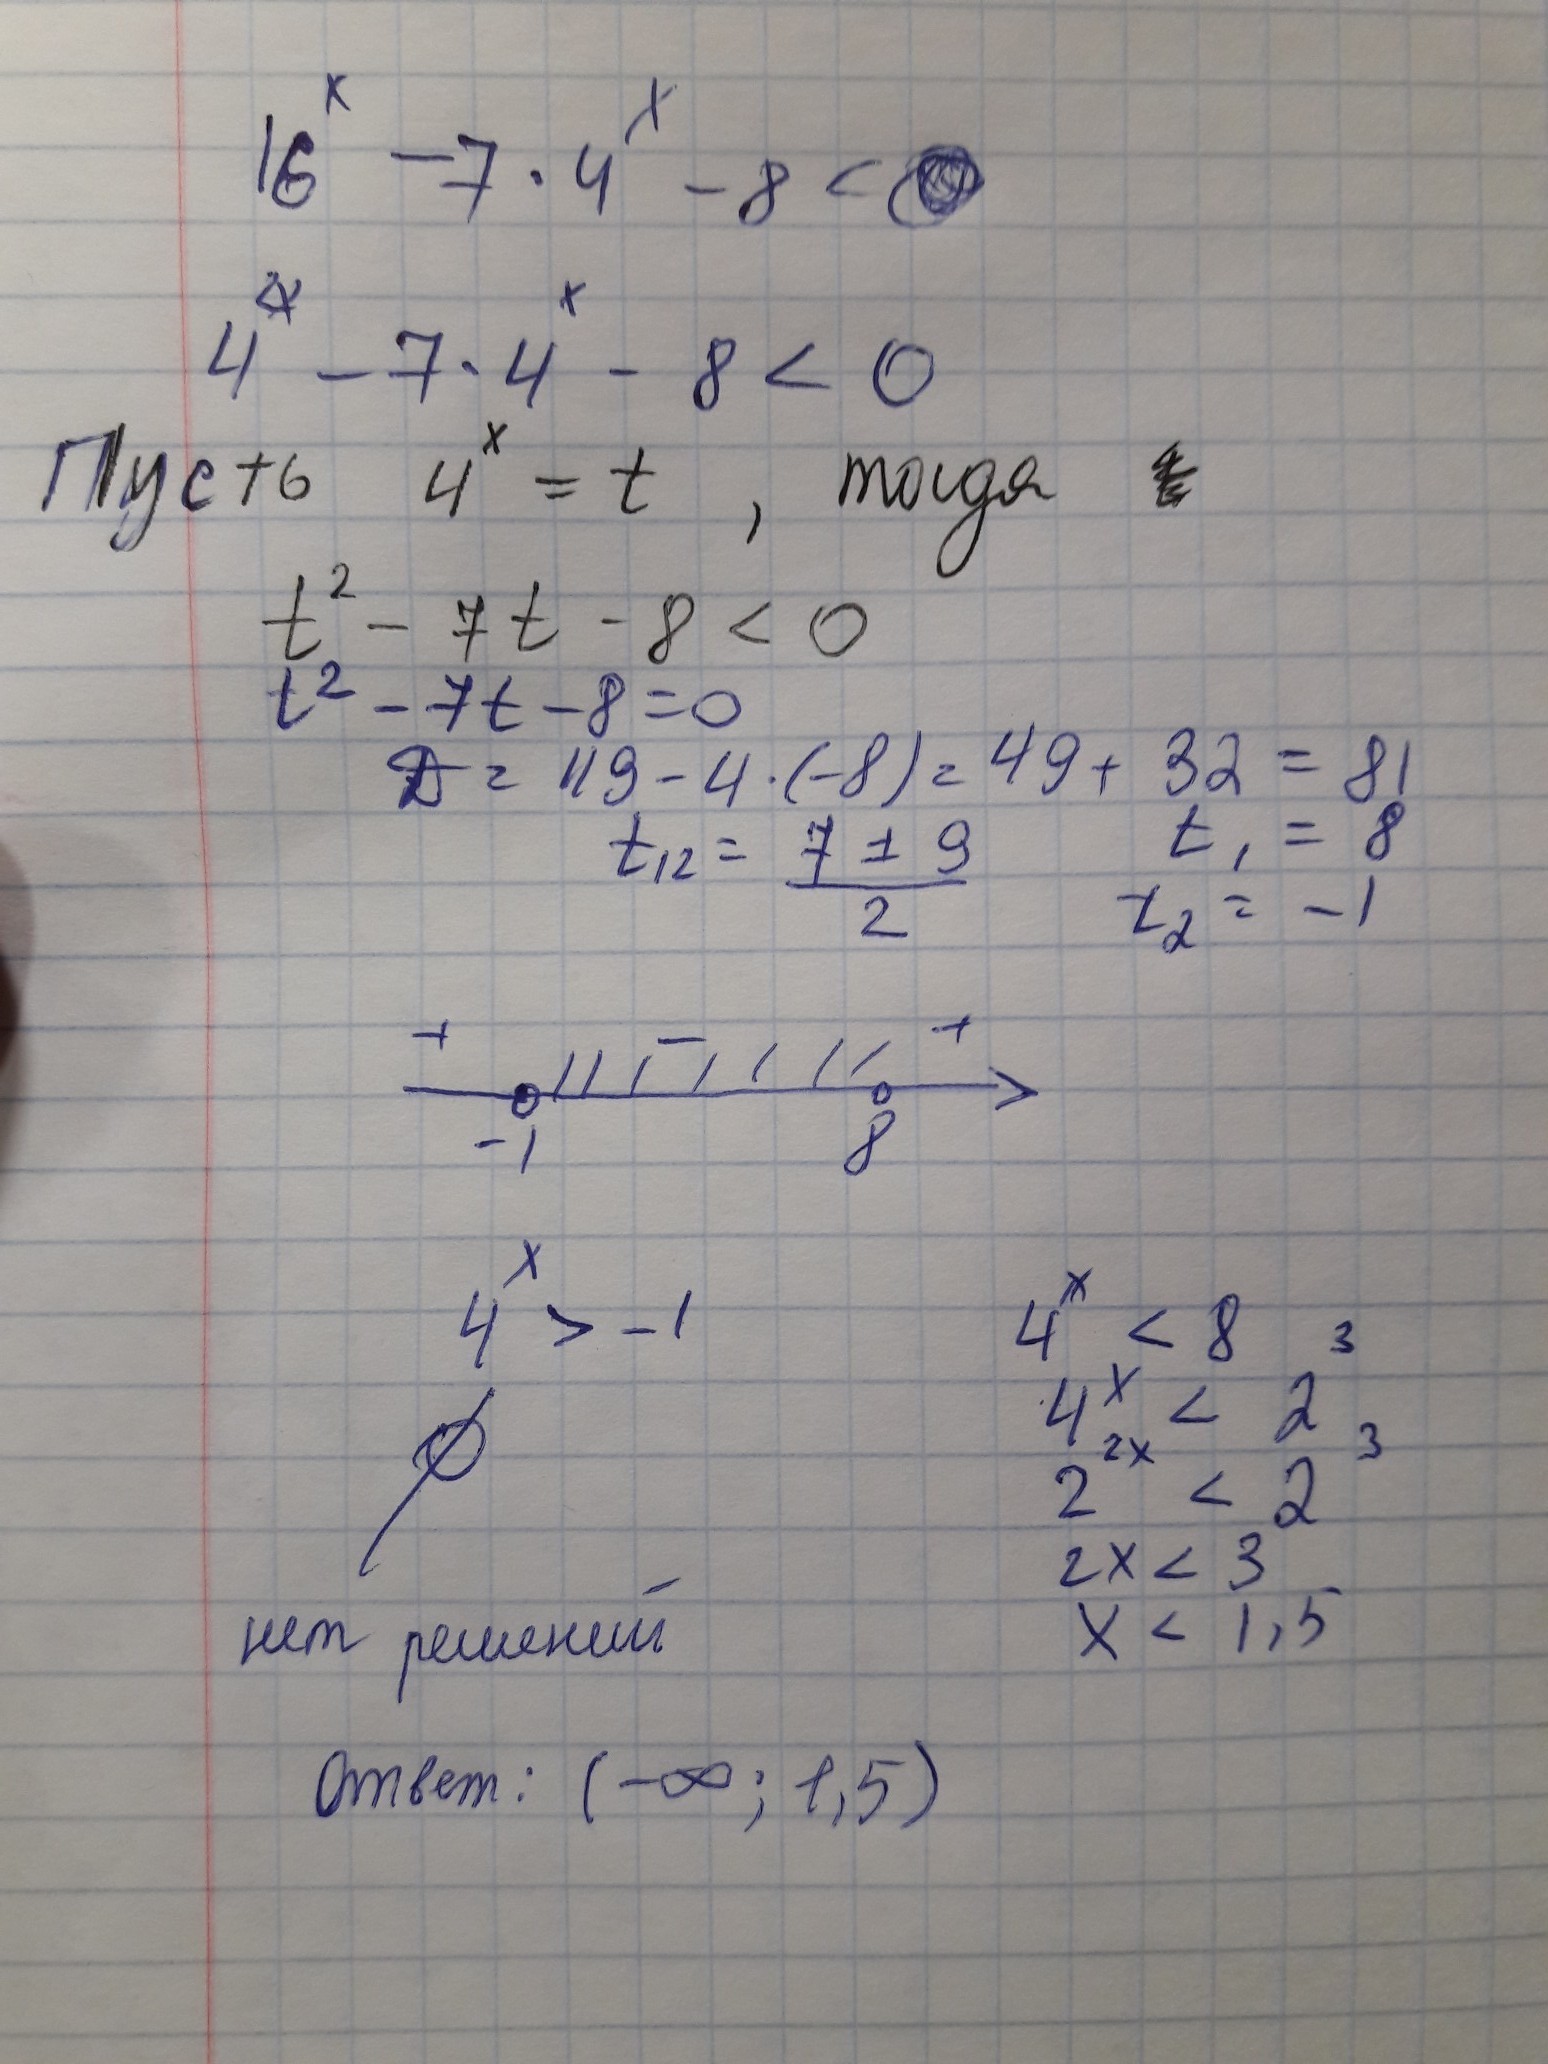 16^x − 7 · 4^x − 8 < 0
4^2x − 7 · 4^x − 8 < 0
Пусть 4^x = t , тогда
t² − 7t − 8 < 0
t² − 7t − 8 = 0
D = 49 − 4 · (−8) = 49 + 32 = 81
t₁₂ = (7 ± 9)/2 t₁ = 8
t₂ = −1
+ − +
−1 8
4^x > −1 4^x < 8
4^x < 2^3
∅ 2^2x < 2^3
2x < 3
нет решений x < 1,5
Ответ: (−∞; 1,5)